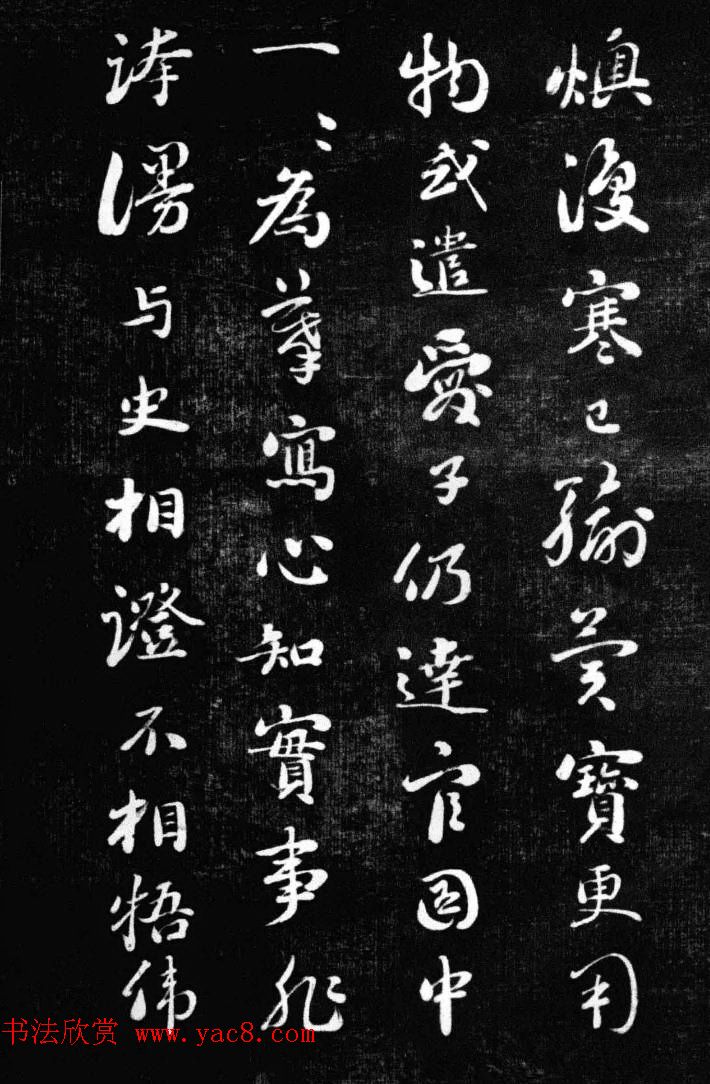 燠寒已寶更用
物或遣愛子仍達官因中
一〻為摹寫心知實事非
誇謾与史相證不相牾伟
书法欣赏 www.yac8.com